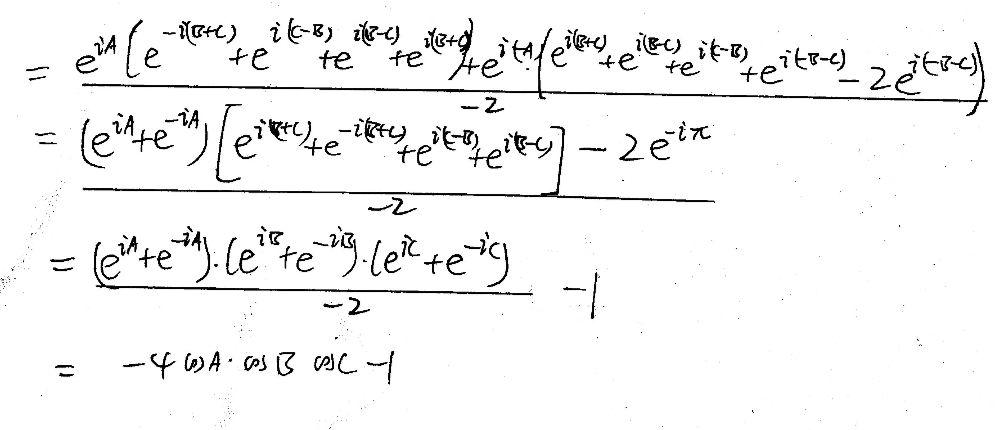 = \frac{e^{iA}[e^{-i(B+C)}+e^{i(C-B)}+e^{i(B-C)}+e^{i(B+C)}]+e^{i(-A)}·(e^{i(B+C)}+e^{i(B-C)}+e^{i(C-B)}+e^{i(-B-C)}-2e^{i(-B-C)})}{-2}
= \frac{(e^{iA}+e^{-iA})[e^{i(B+C)}+e^{-i(B+C)}+e^{i(C-B)}+e^{i(B-C)}]-2e^{-iπ}}{-2}
= \frac{(e^{iA}+e^{-iA})·(e^{iB}+e^{-iB})·(e^{iC}+e^{-iC})}{-2} -1
= -4 cosA·cosB cosC -1